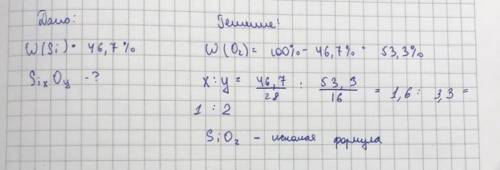 Дано:
Решение:
W(Si) = 46,7%
W(O₂) = 100% - 46,7% = 53,3%
SiₓOᵧ - ?
x : y = 46,7/28 : 53,3/16 = 1,6 : 3,3 =
1 : 2
SiO₂ - искомая формула